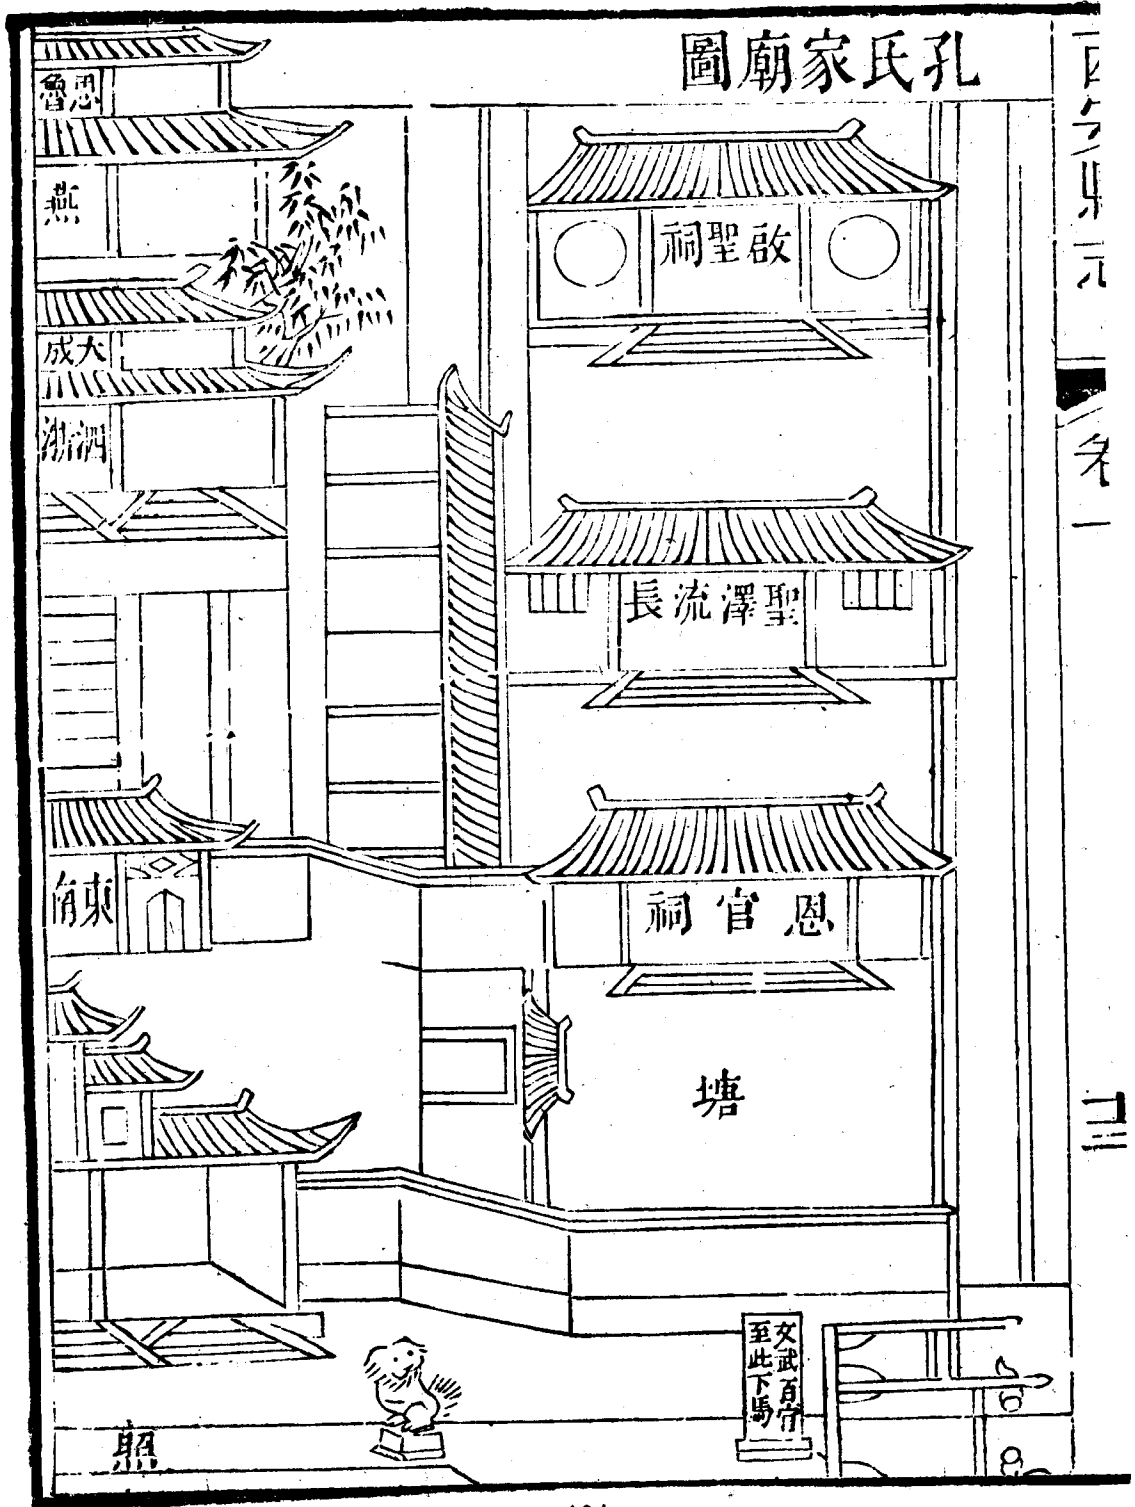 孔氏家廟圖
啟聖祠
聖澤流長
恩官祠
塘
文武百官
至此下馬
思魯
燕
大成
泗浙
東角
照
卷一